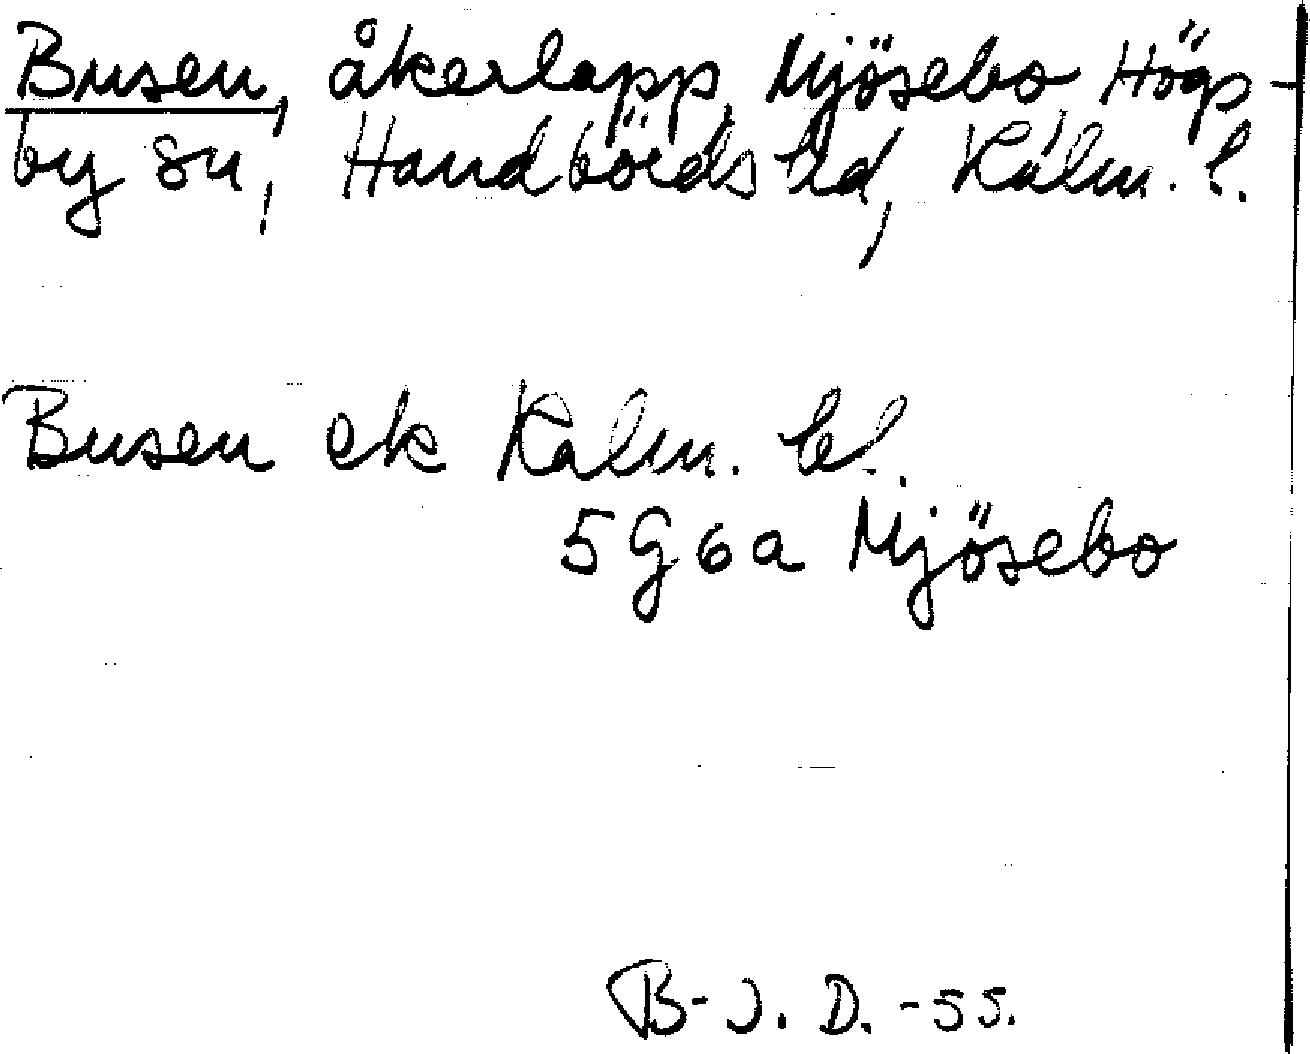 Busen, åkerlapp, Mjösebo Högs-
by sn, Handbörds hd, Kalm. l.
Busen ek Kalm. bl.
5G6a Mjösebo
B-J. D. -55.